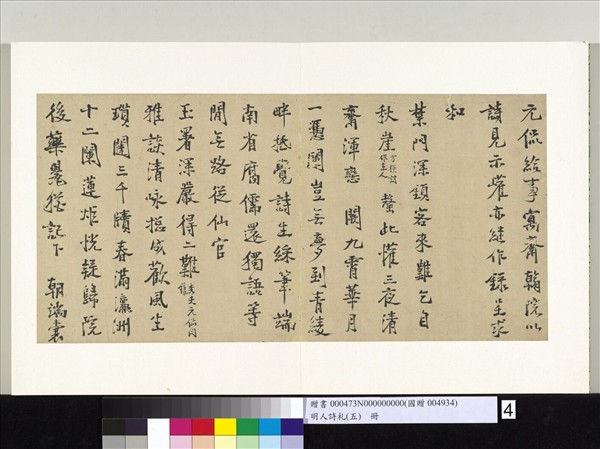 元侃給事寓齋翰院以
詩見示亦繼作錄呈求
和
葉門深鎖客來難乞自
秋崖此三夜清
齋渾戀闕九霄華月
一憑闌豈無夢到青綾
畔覺詩生綵筆端
南省腐儒還獨語等
閒無路從仙官
玉署深嚴得二難
雅談清詠揔成歡風生
三千牘春滿瀛洲
十二闌蓮炬恍疑歸院
後下朝
贈書 000473N000000000(國贈 004934)
明人詩札(五) 冊
4